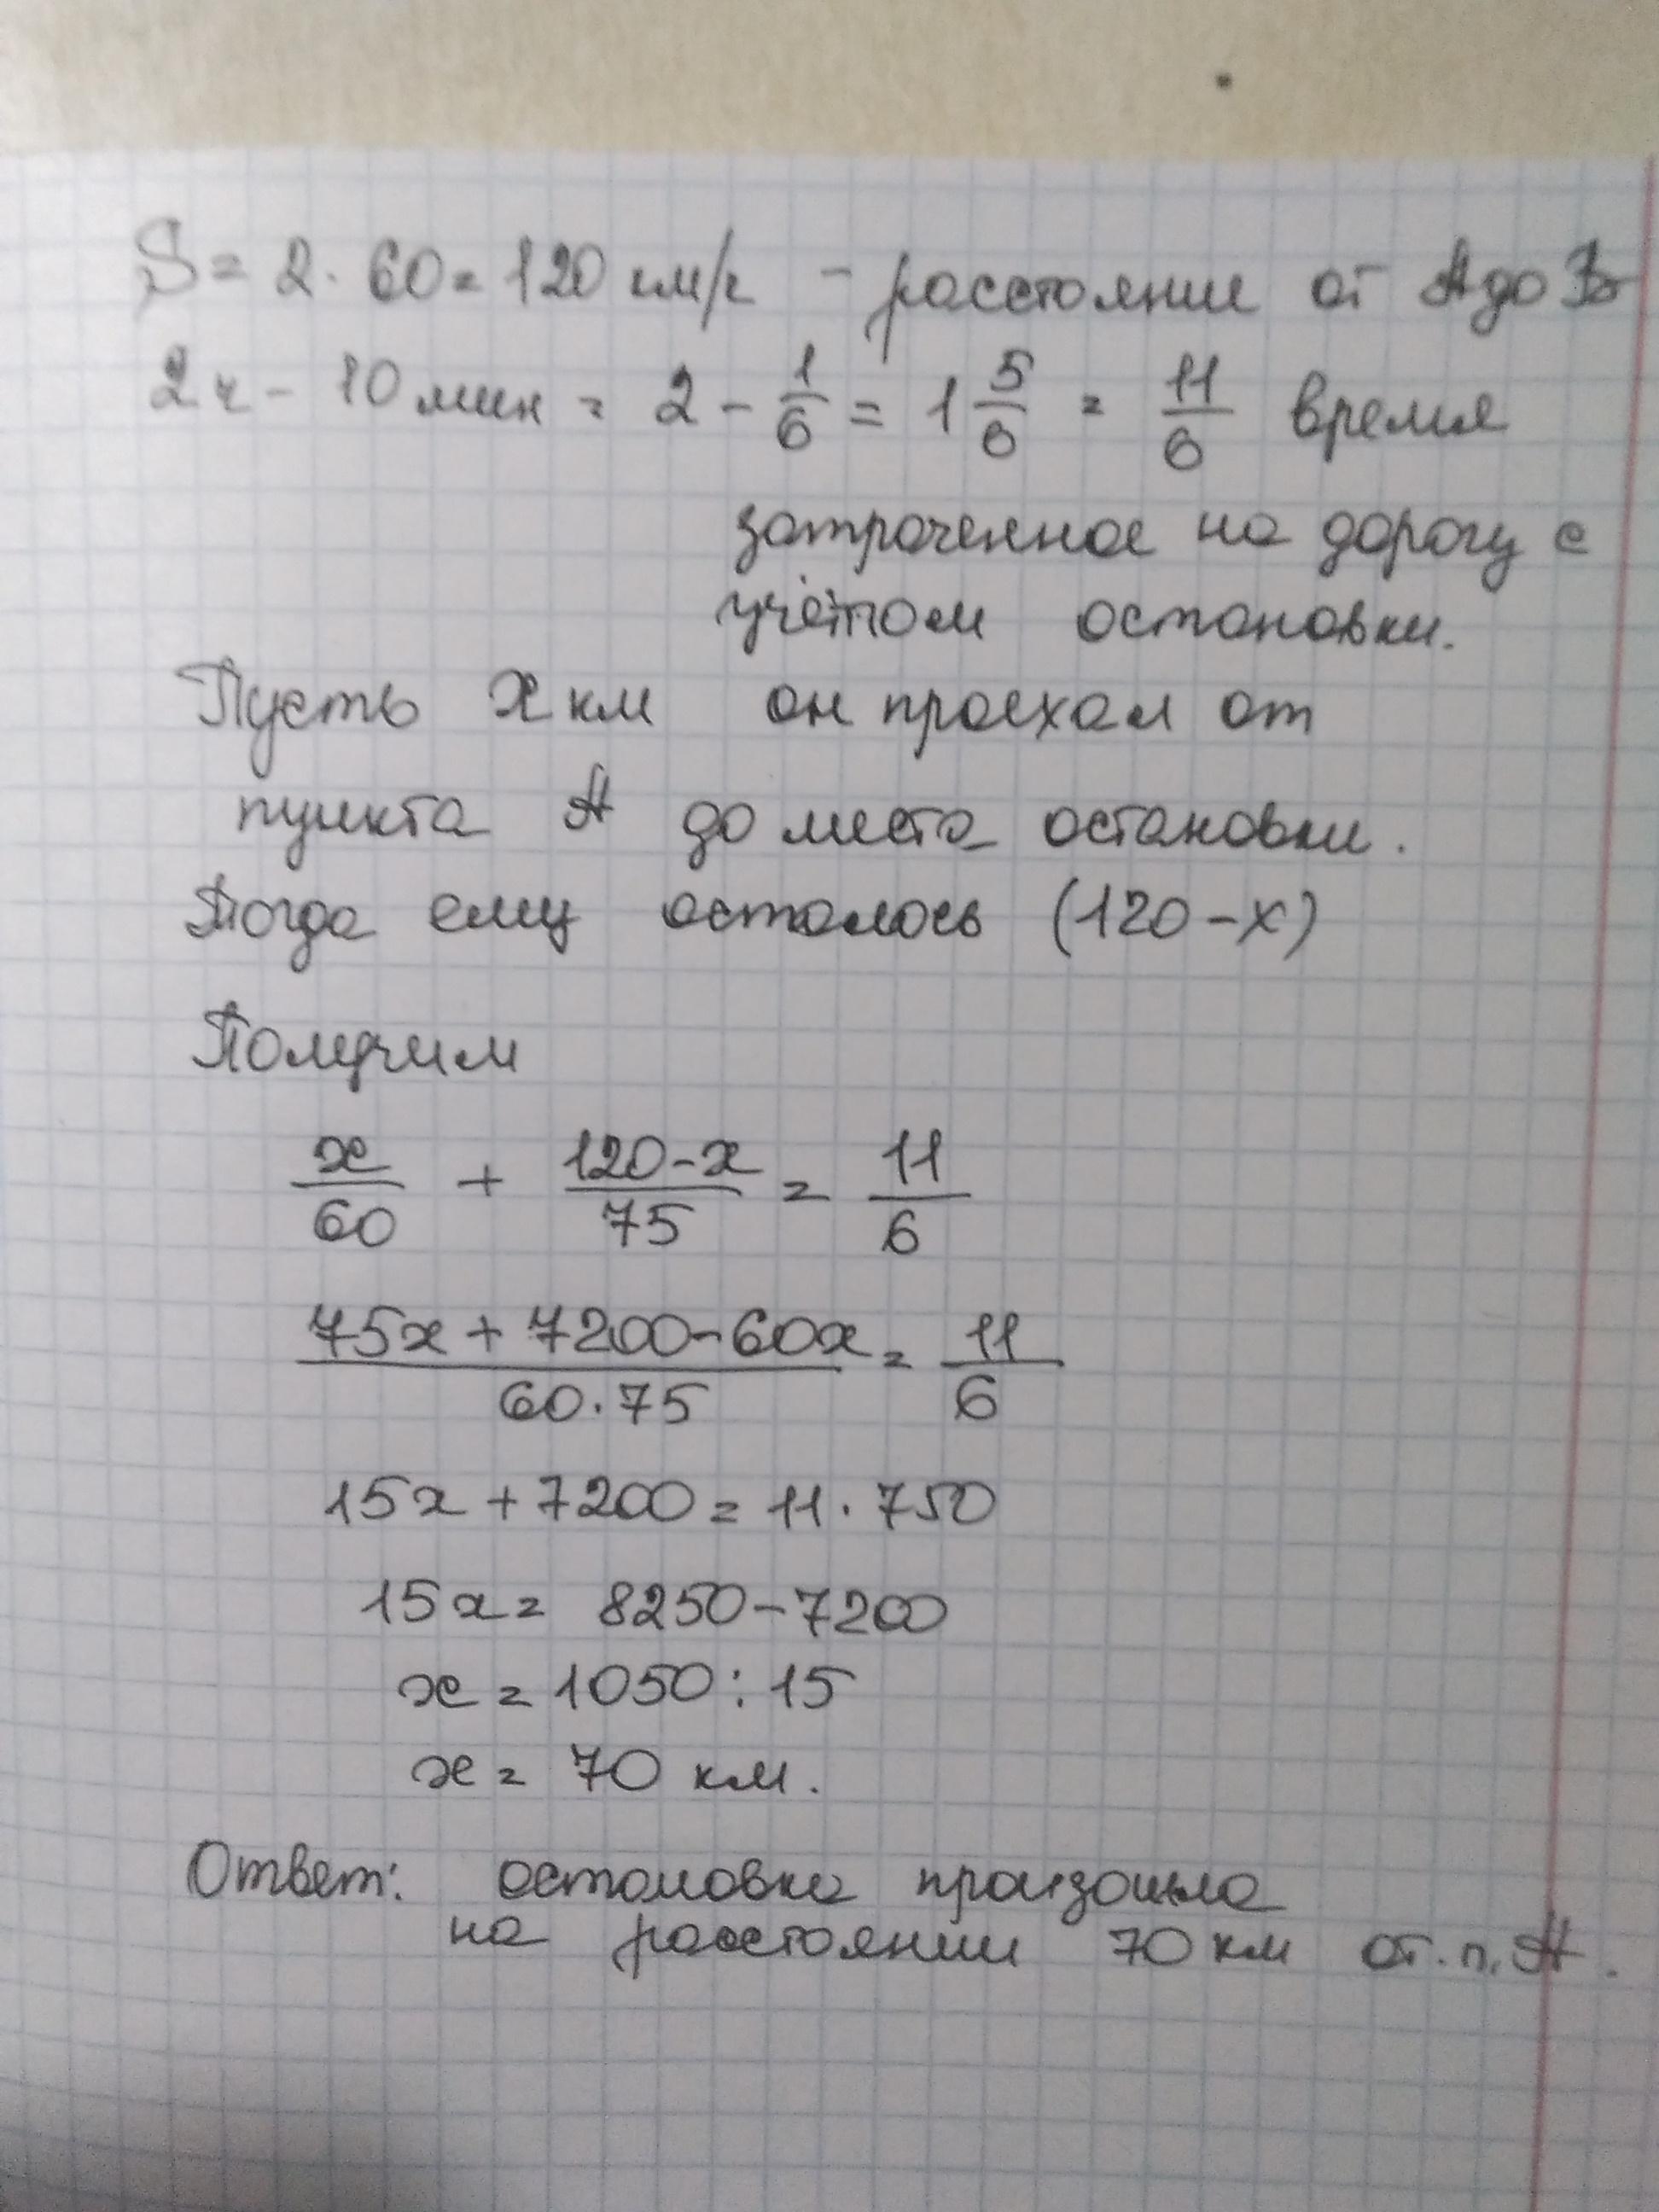 S = 2 · 60 = 120 км/ч - расстояние от А до В
2ч - 10 мин = 2 - 1/6 = 1 5/6 = 11/6 время
затраченное на дорогу с
учётом остановки.
Пусть x км он проехал от
пункта А до места остановки.
Тогда ему осталось (120 - x)
Получим
x/60 + 120-x/75 = 11/6
75x + 7200 - 60x/60·75 = 11/6
15x + 7200 = 11 · 750
15x = 8250 - 7200
x = 1050 : 15
x = 70 км.
Ответ: остановка произошла
на расстоянии 70 км от. п. А.